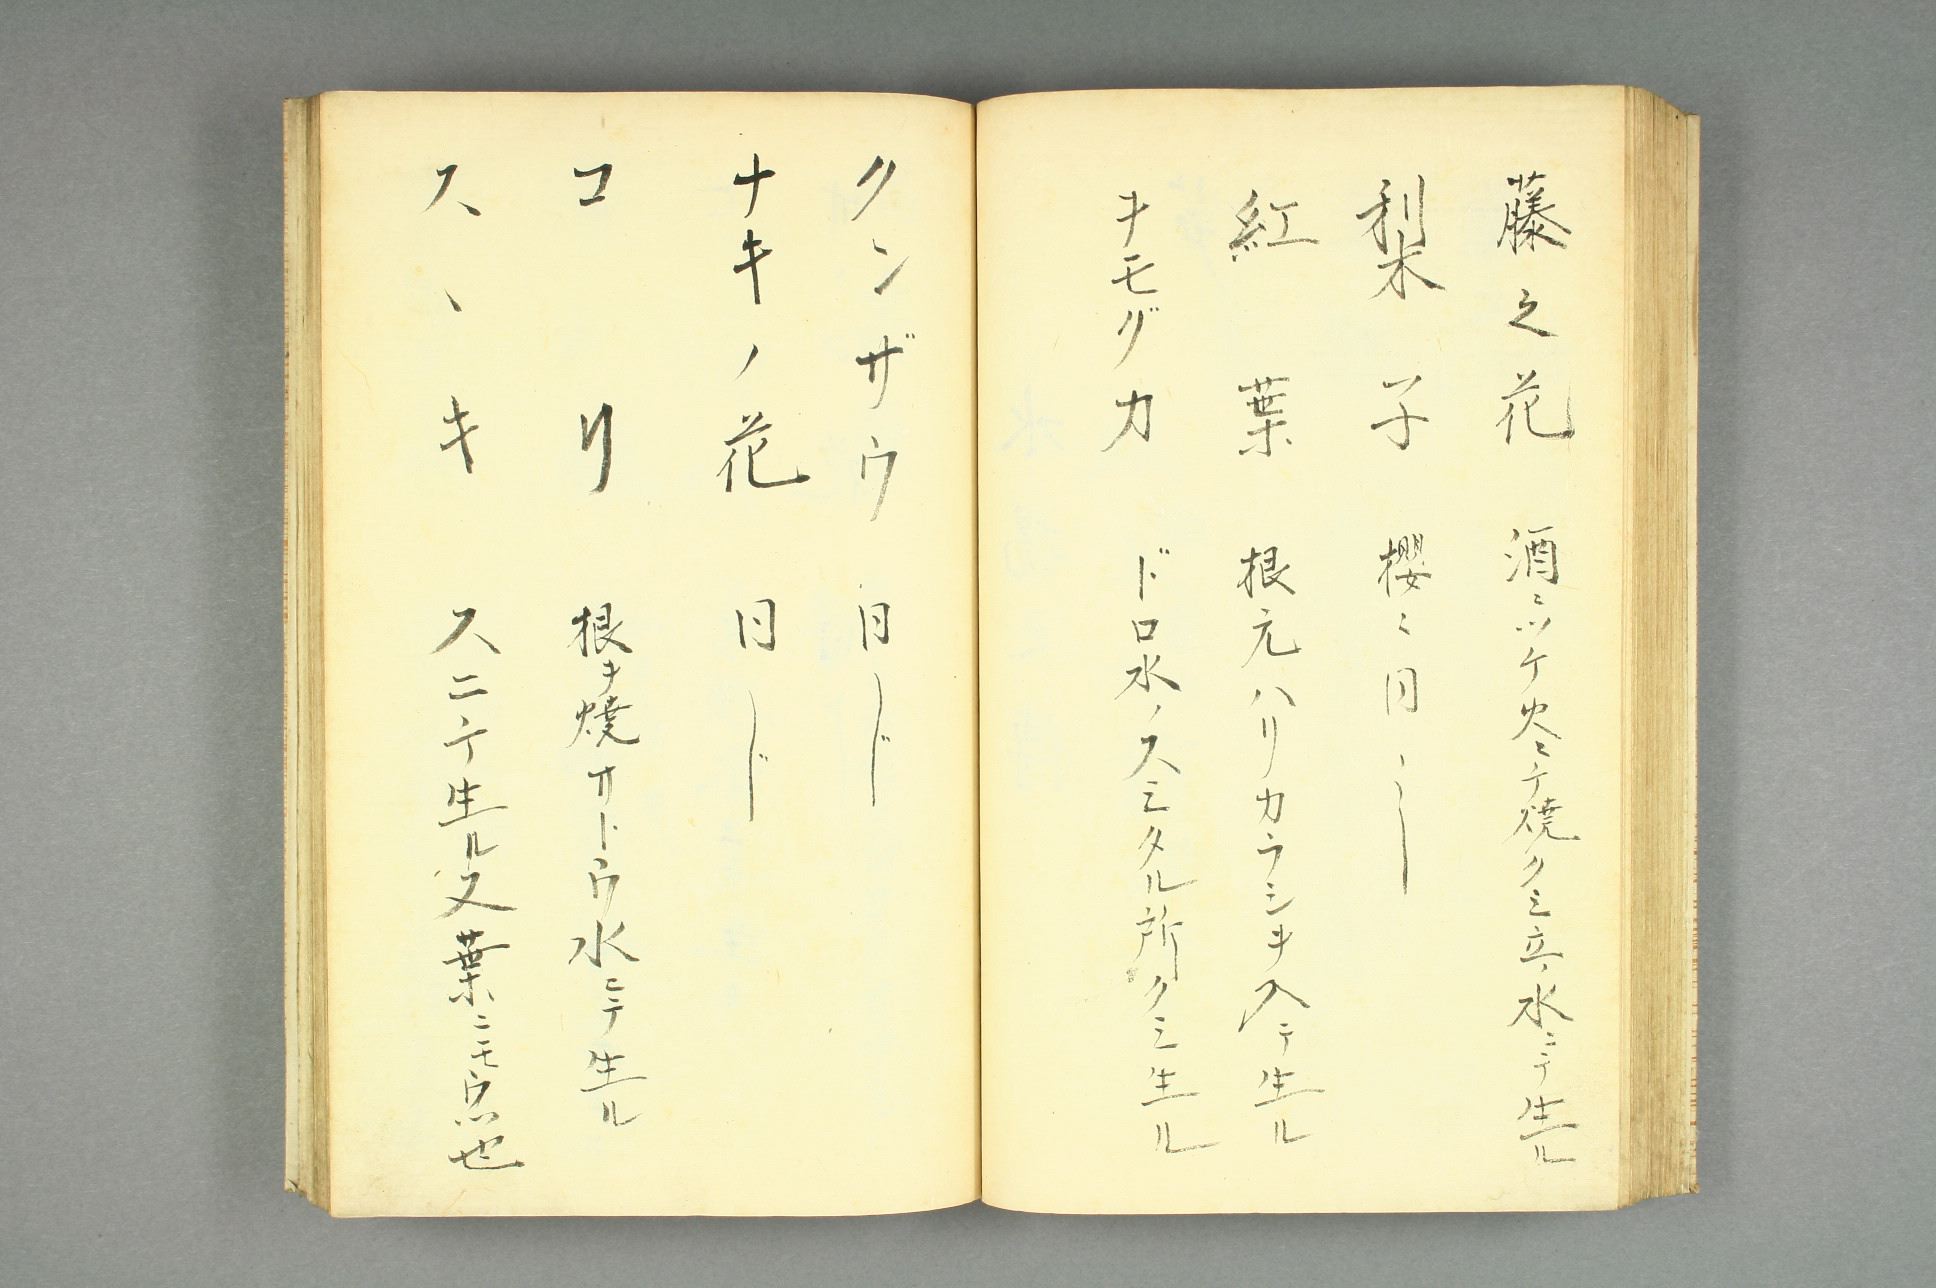 藤之花 酒ニツケ火ニテ焼クミ立水ニテ生ル
梨子 櫻ニ同シ
紅葉 根元ハリカラシヲ入テ生ル
ヲモダカ ドロ水ノスミタル所クミ生ル
クンザウ 同じ
ナキノ花 同じ
コリ 根ヲ焼サトウ水ニテ生ル
スヽキ スニテ生ル又葉ニモ